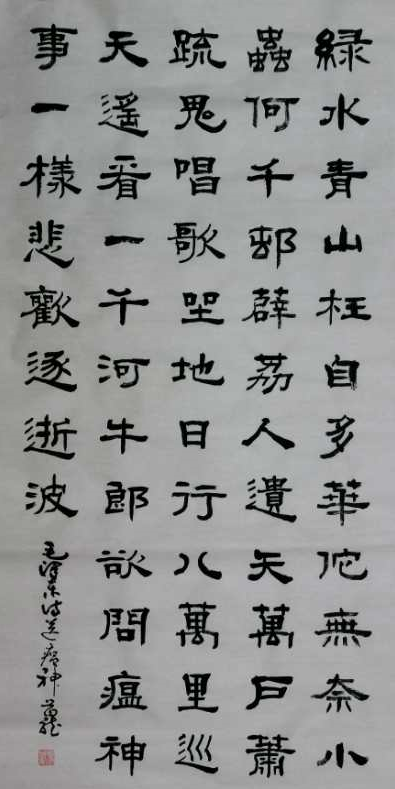 綠水青山枉自多華佗無奈小
蟲何千邨薜荔人遺矢萬戶蕭
疏鬼唱歌坐地日行八萬里巡
天遙看一千河牛郎欲問瘟神
事一樣悲歡逐逝波
毛澤東詩送瘟神